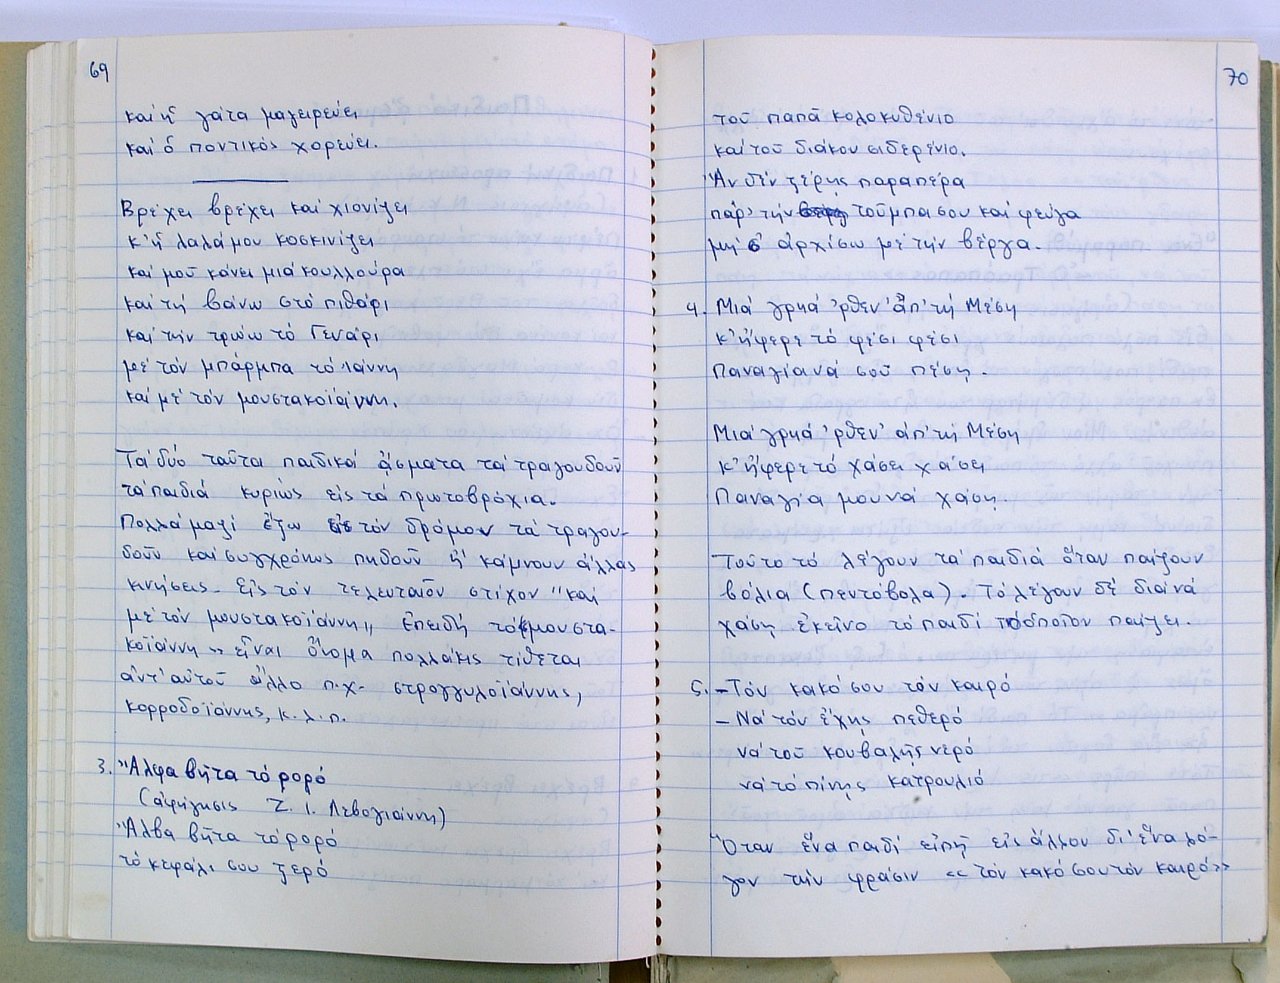 69
καί ἡ γάτα μαγειρεύει
καί ὁ ποντικός χορεύει.
Βρέχει βρέχει καί χιονίζει
κ' ἡ λαλά μου κοσκινίζει
καί μοῦ κάνει μιά κουλλούρα
καί τή βάνω στό πιθάρι
καί τήν τρώω τό Γενάρι
μέ τόν μπάρμπα τό Ιάννη
καί μέ τόν μουστακοϊάννη.
Τά δύο ταῦτα παιδικά ᾄσματα τά τραγουδοῦν
τά παιδιά κυρίως εἰς τά πρωτοβρόχια.
Πολλά μαζί ἔξω εἰς τόν δρόμον τά τραγου-
δοῦν καί συγχρόνως πηδοῦν ἤ κάμνουν ἄλλας
κινήσεις. Εἰς τόν τελευταῖον στίχον "καί
μέ τόν μουστακοϊάννη,, ἐπειδή τό «μουστα-
κοϊάννη» εἶναι ὄνομα πολλάκις τίθεται
ἀντ' αὐτοῦ ἄλλο π.χ. στρογγυλοϊάννης,
κορροδοϊάννης, κ.λ.π.
3. Ἄλφα βῆτα τό ρορό
(ἀφήγησις Σ. Ι. Λεβογιάννη)
Ἄλβα βῆτα τό ρορό
τό κεφάλι σου ξερό
70
τοῦ παπᾶ κολοκυθένιο
καί τοῦ διάκου σιδερένιο.
Ἄν δέν ξέρῃς παραπέρα
πάρ' τήν τοῦμπα σου καί φεύγα
μή σ' ἀρχίσω μέ τήν βέργα.
4. Μιά γρηά 'ρθεν' ἀπ' τή Μέση
κ' ἤφερε τό φέσι φέσι
Παναγιά νά σοῦ πέσῃ.
Μιά γρηά 'ρθεν' ἀπ' τή Μέση
κ' ἤφερε τό χάσει χάσει
Παναγία μου νά χάσῃ.
Τοῦτο τό λέγουν τά παιδιά ὅταν παίζουν
βόλια (πεντόβολα). Τό λέγουν δέ διά νά
χάσῃ ἐκεῖνο τό παιδί τό ὁποῖον παίζει.
5. – Τόν κακό σου τόν καιρό
– Νά τόν ἔχῃς πεθερό
νά τοῦ κουβαλῇς νερό
νά τό πίνῃς κατρουλιό
Ὅταν ἕνα παιδί εἰπῇ εἰς ἄλλον δι' ἕνα λό-
γον τήν φράσιν «τόν κακό σου τόν καιρό»